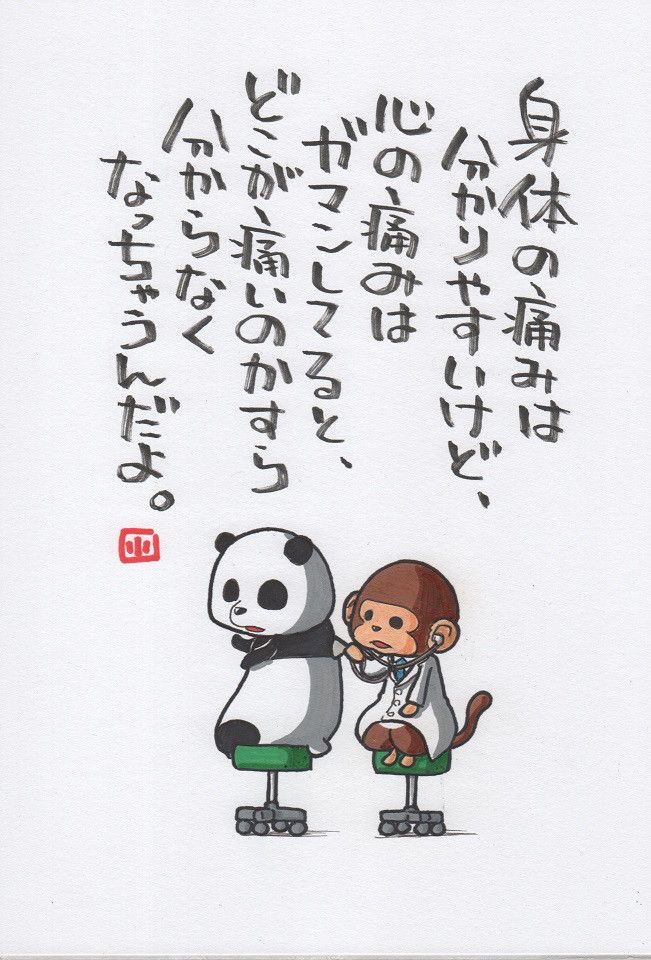 身体の痛みは
分かりやすいけど、
心の痛みは
ガマンしてると、
どこが痛いのかすら
分からなく
なっちゃうんだよ。